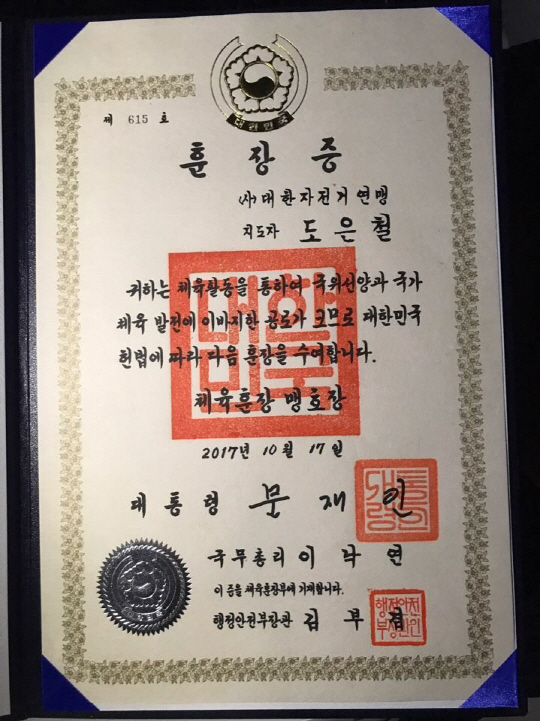 대한민국
제 615 호
훈장증
(사)대한자전거연맹
지도자 도은철
귀하는 체육활동을 통하여 국위선양과 국가
체육 발전에 이바지한 공로가 크므로 대한민국
헌법에 따라 다음 훈장을 수여합니다.
체육훈장 맹호장
2017년 10월 17일
대통령 문재인
국무총리 이낙연
이 증을 체육훈장부에 기재합니다.
행정안전부장관 김부겸